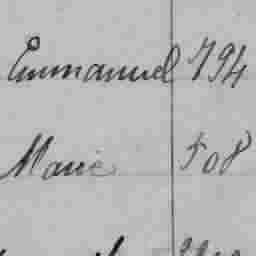 Emmanuel 794
Marie 508